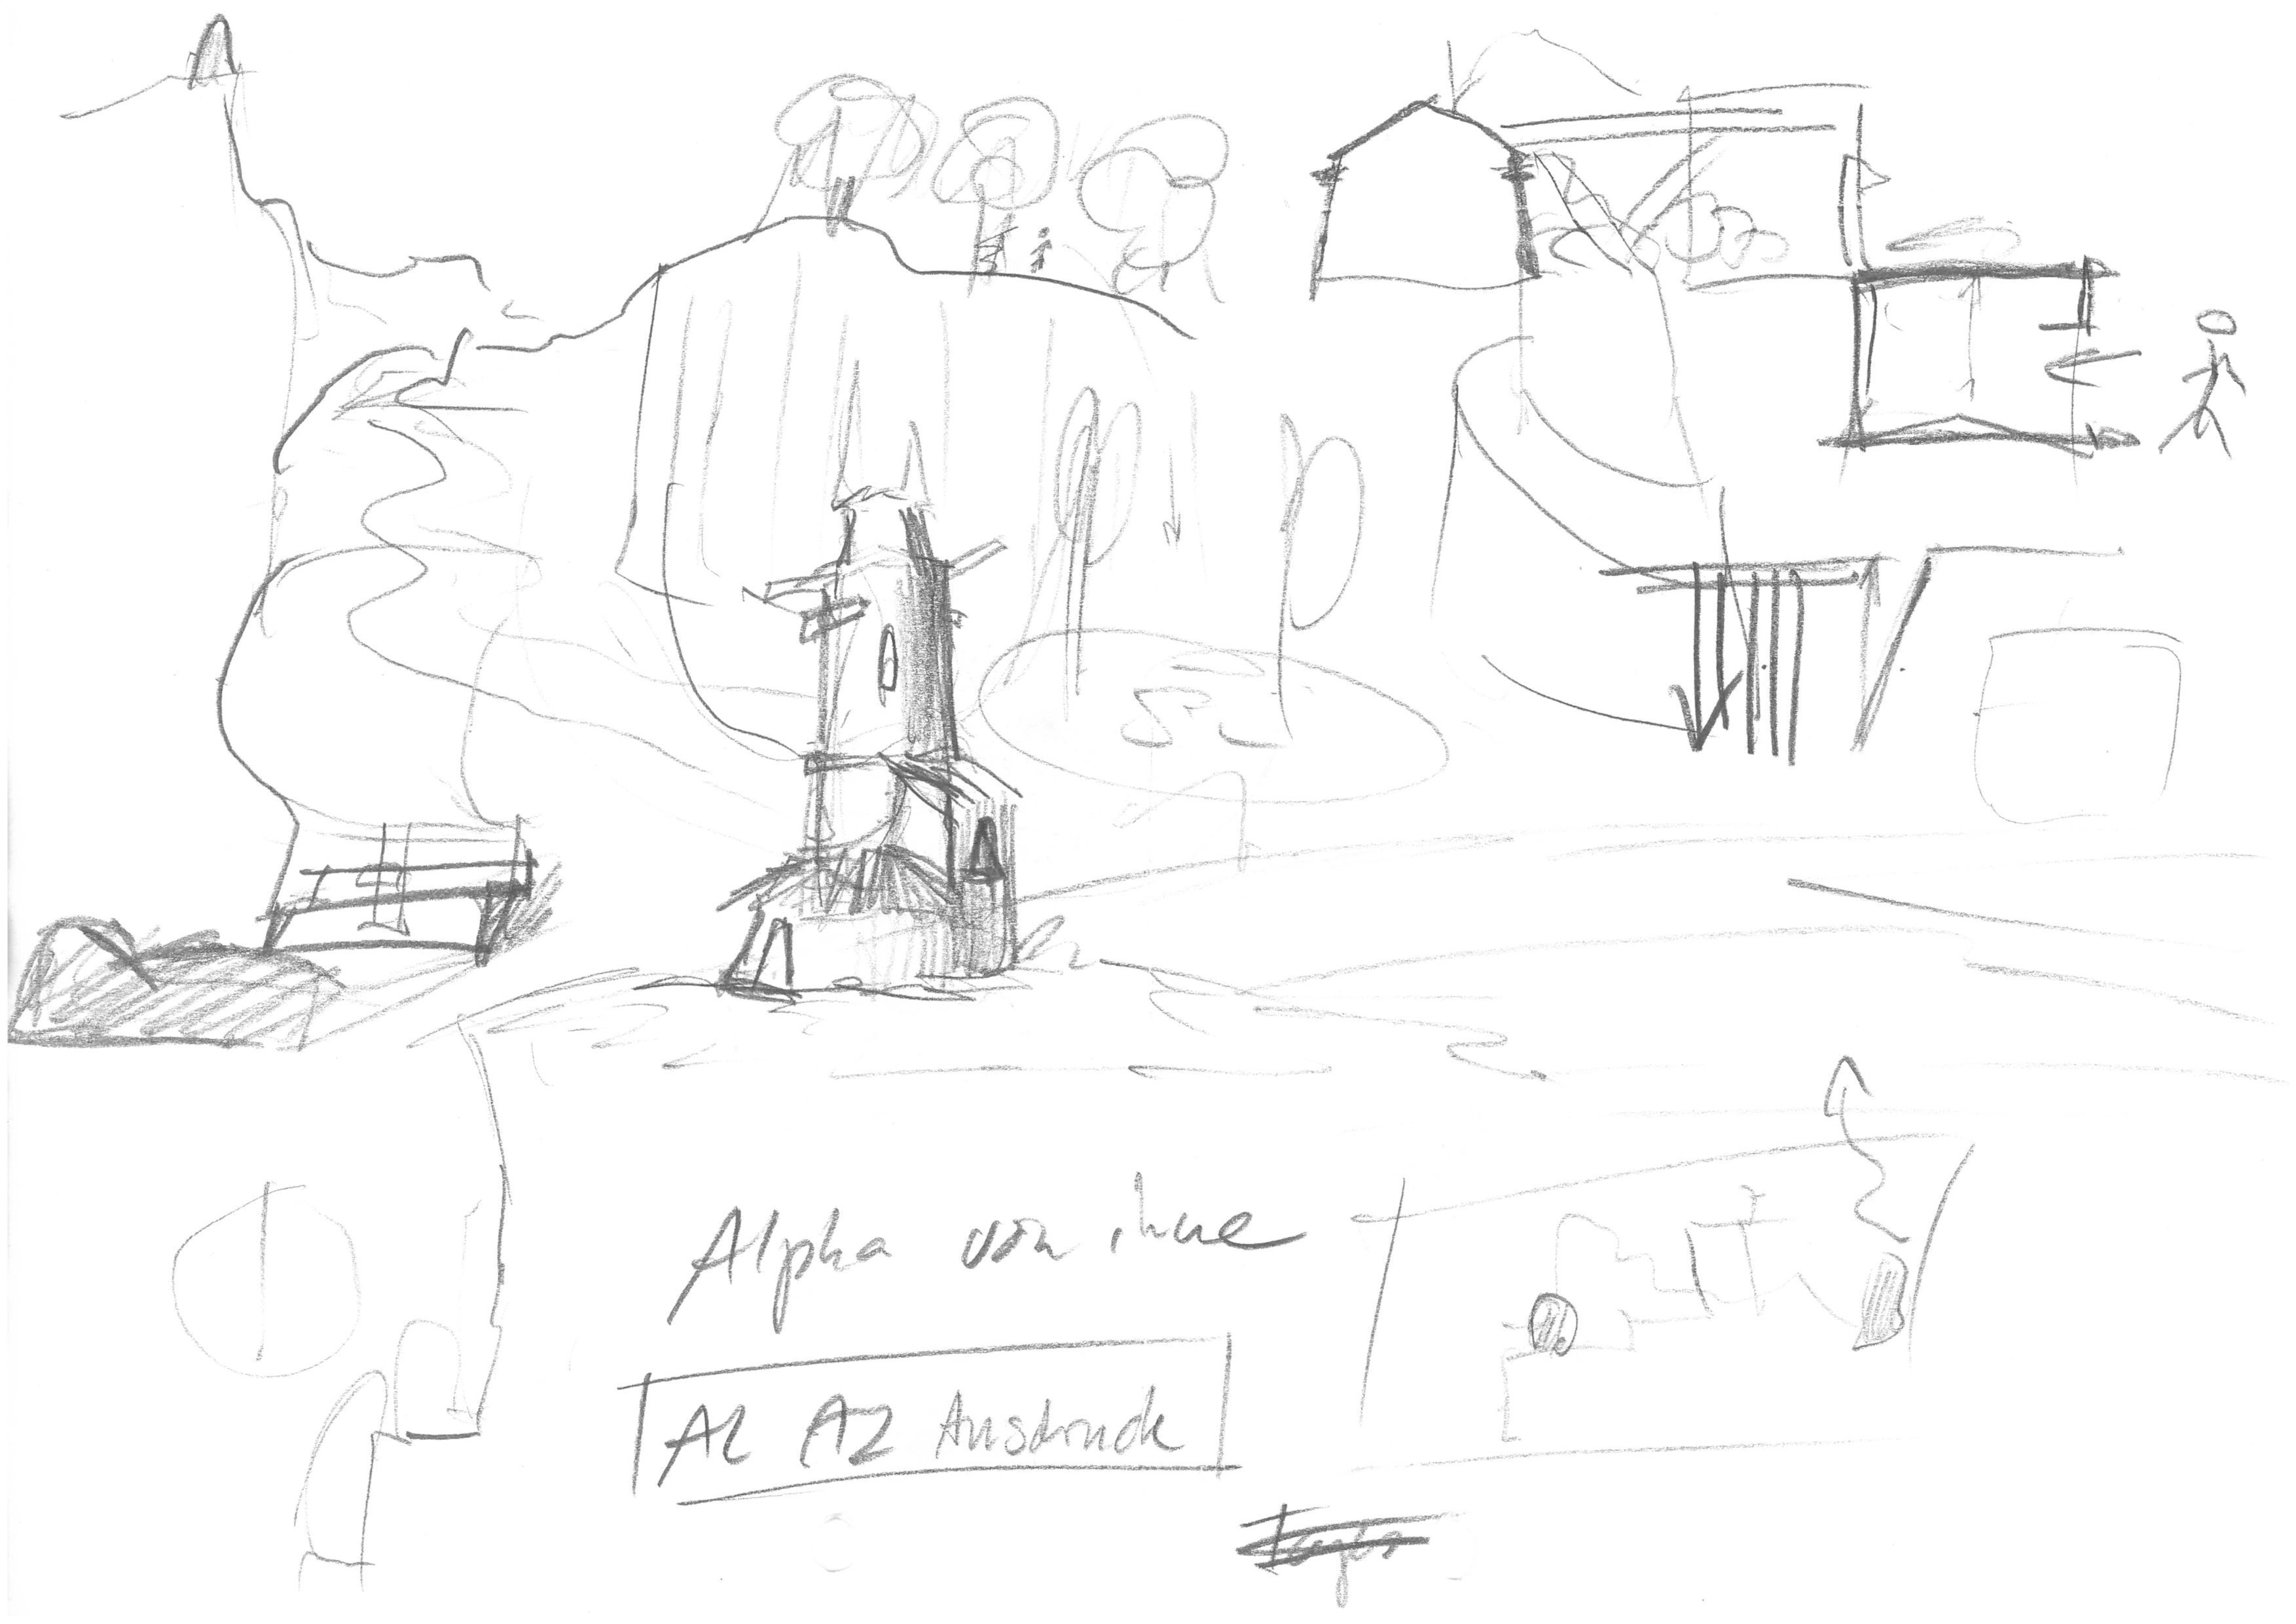 Alpha von ihne
A1 A2 Ausdruck